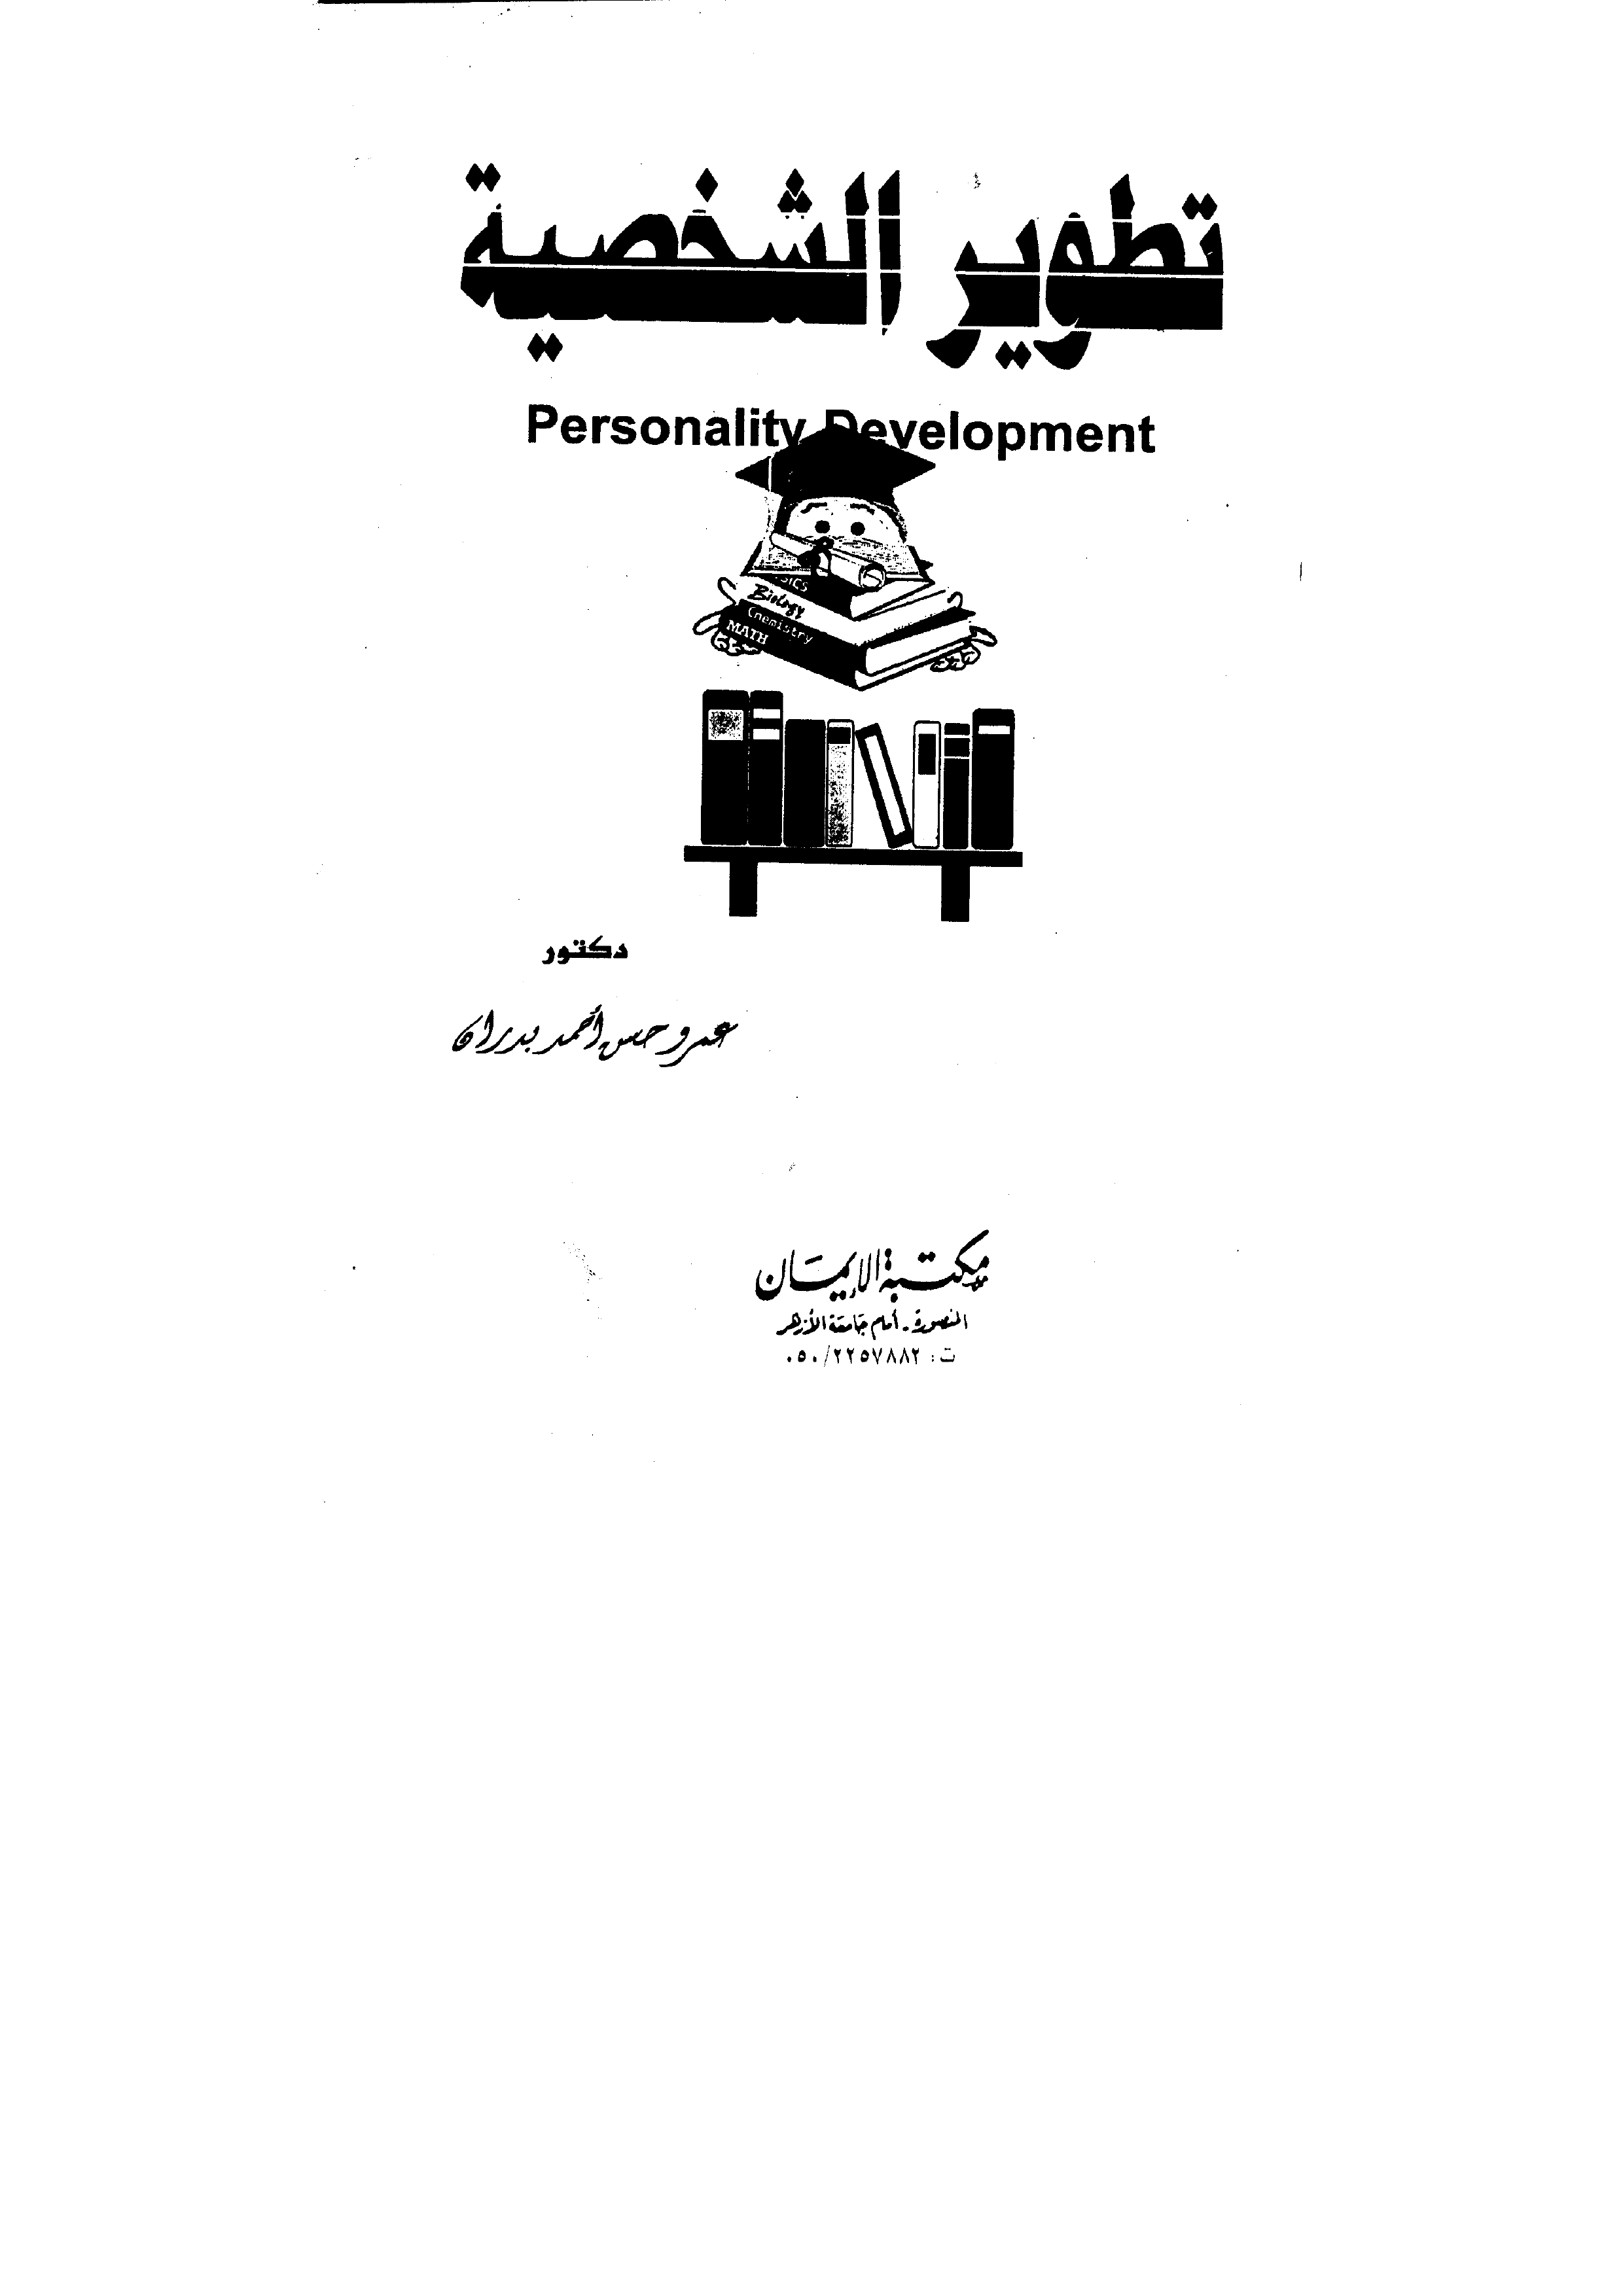 تطوير الشخصية
Personality Development
Biology
Chemistry
MATH
دكتور
عمرو حسن أحمد بدران
مكتبة الإيمان
المنصورة - أمام جامعة الأزهر
ت : ٠٥٠/٢٢٥٧٨٨٢